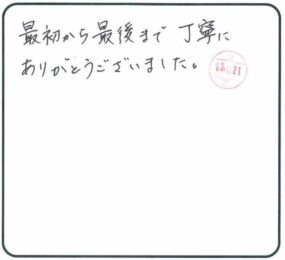 最初から最後まで丁寧に
ありがとうございました。